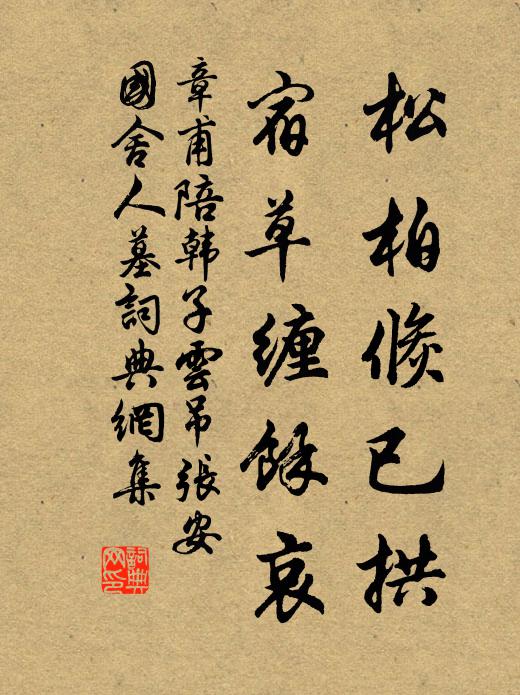 松柏倏已拱
宿草纏餘哀
章甫陪韩子雲吊張安
國舍人墓詞典網集
詞典
网印